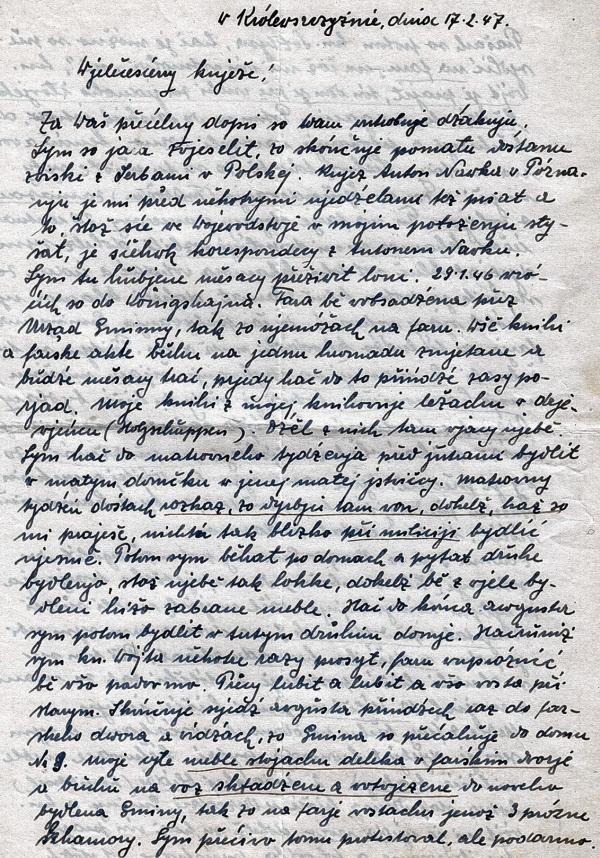 w Królewszczyźnie, dnia 17.2.47.
Wjelečesćeny knježe!
Za Waš přećelny dopis so Wam wutrobnje dźakuju.
Sym so jara zwjeselił, zo skónčnje pomału dostanu
zwiski z Serbami w Pólskej. Knjez Anton Nawka w Pózna-
nju je mi před někotrymi njedźelemi tež pisał a
to, štož sće we Wojewodstwje w mojim położenju sły-
šał, je sćěhwk korespondency z Antonem Nawku.
Sym tu hubjene měsacy přežiwił loni. 29.1.46 wró-
ćich so do Königshajna. Fara bě wobsadźena přez
Urząd Gminny, tak zo njemóžach na faru. Wšě knihi
a farske akte běchu na jednu hromadu zmjetane a
budźe měsacy trać, prjedy hač do to přińdźe zasy po-
rjad. Moje knihi z mojej knihownje ležachu w drje-
wjeńcu (Holzschuppen). Dźěl z nich tam wjacy njebě.
Sym hač do matrowneho tydźenja pola jutrami bydlił
w małym domčku w jenej małej jstwičcy. Matrowny
tydźeń dóstach rozkaz, zo dyrbju tam won, dokelž, kaž so
mi praješe, nichtó tak blizko při miliciji bydlić
njesmě. Potom sym běhał po domach a pytał druhe
bydlenje, štož njebě tak lohke, dokelž bě z wjele by-
dleni hižo zabrane meble. Hač do kónca awgusta
sym potom bydlił w tutym druhim domje. Hačrunjež
sym kn. Wojta někotre razy prosył, faru wuprózdnić
bě wšo podarmo. Přecy lubił a lubił a wšo wosta při
starym. Skónčnje srjedź awgusta přińdźech raz do far-
skeho dwora a widźach, zo Gmina so přećahuje do domu
№ 9. Moje wšě meble stojachu deleka w farskim dworje
a buchu na wóz składźene a wotwjezene do noweho
bydlenja Gminy, tak zo na farje wostachu jenož 3 prózne
szhamory. Sym přećiwo tomu protestował, ale podarmo.